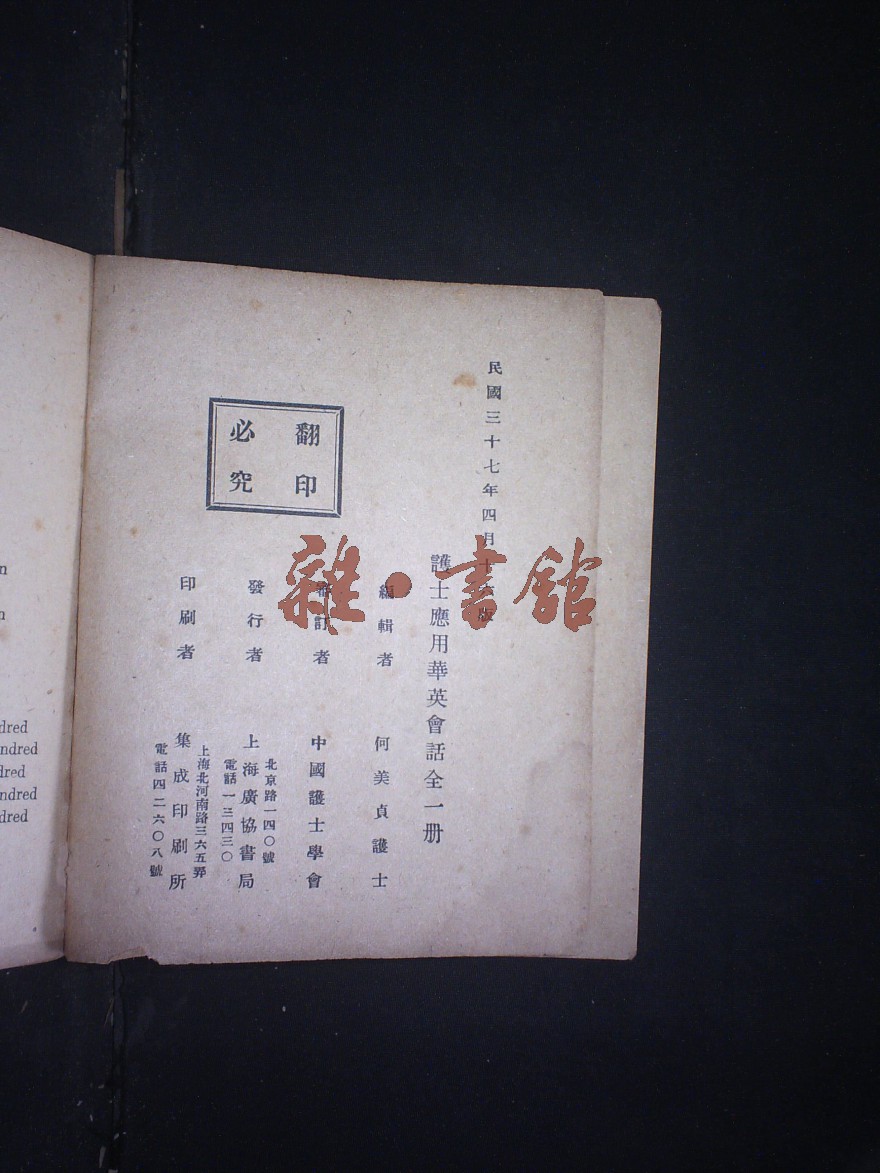 民國三十七年四月十六版
護士應用華英會話全一册
編輯者 何美貞護士
審訂者 中國護士學會
發行者 上海廣協書局
北京路一四〇號
電話一三四三〇
印刷者 集成印刷所
上海北河南路三六五弄
電話四二六〇八號
翻印
必究
雜·書館
n
n
dred
ndred
dred
ndred
dred